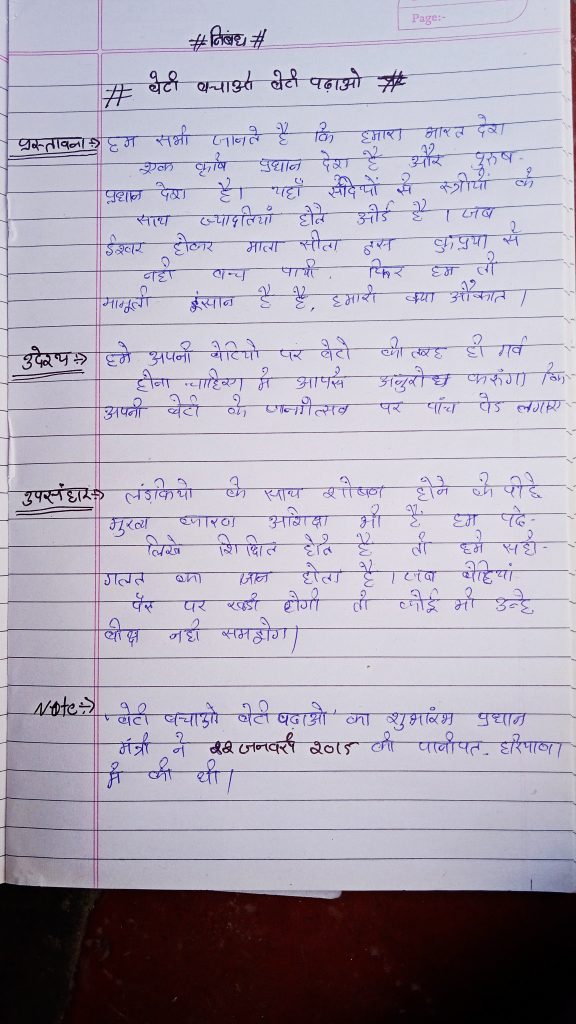 Page:-
# निबंध #
# बेटी बचाओ बेटी पढ़ाओ #
प्रस्तावना⇒ हम सभी जानते है कि हमारा भारत देश
एक कृषि प्रधान देश है और पुरुष-
प्रधान देश है। यहाँ सदियों से स्त्रीयों के
साथ ज्यादतियां होते आई है। जब
ईश्वर होकर माता सीता इस कुप्रथा से
नही बच पायी. फिर हम तो
मामूली इंसान है है, हमारी क्या औकात।
उदेश्य⇒ हमे अपनी बेटियो पर बेटो की तरह ही गर्व
होना चाहिए मै आपसे अनुरोध करुंगा कि
अपनी बेटी के जन्मोत्सव पर पांच पेड लगाए
उपसंहार⇒ लंड़कियो के साथ शोषण होने के पीछे
मुख्य कारण अशिक्षा भी है हम पढे-
लिखे शिक्षित होते है तो हमे सही-
गलत का ज्ञान होता है। जब बेटियां
पैर पर खडी होगी तो कोई भी उन्हे
बोझ नही समझेगा।
Note:⇒ 'बेटी बचाओ बेटी पढ़ाओ' का शुभारंभ प्रधान
मंत्री ने २२ जनवरी 2015 को पानीपत, हरियाणा
मे की थी।